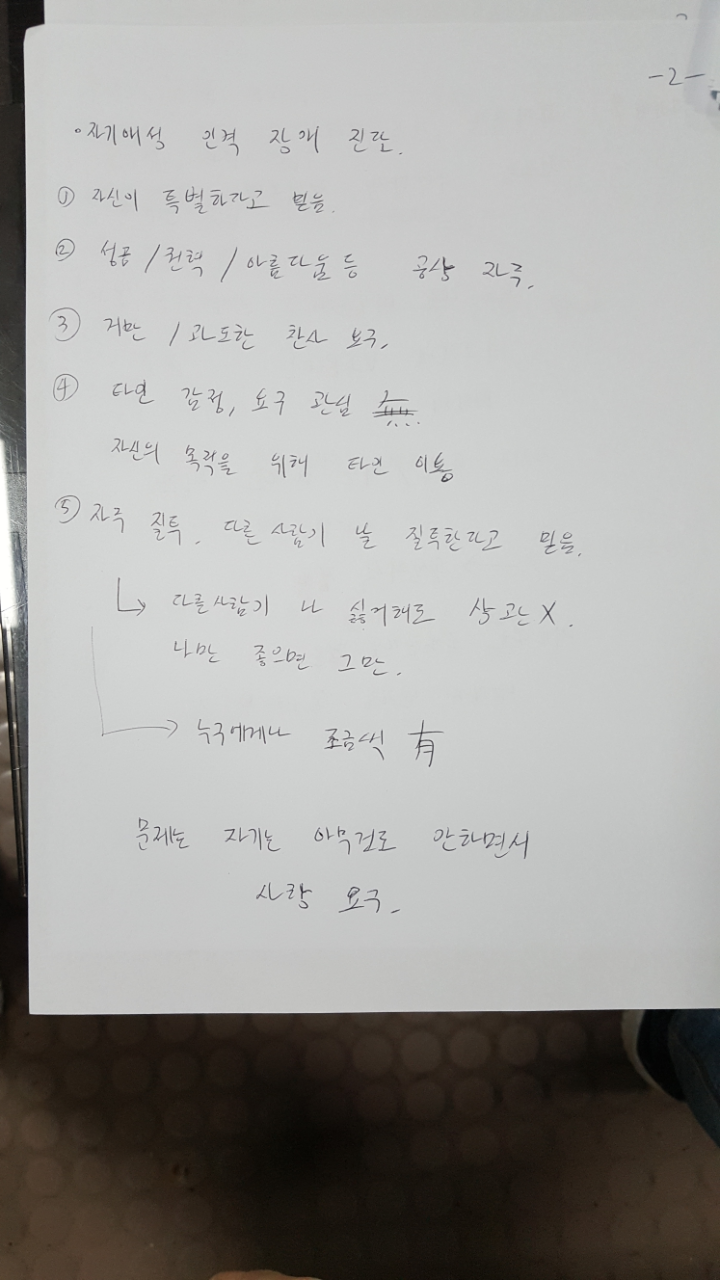 -2-
• 자기애적 인격 장애 진단.
① 자신이 특별하다고 믿음.
② 성공 / 권력 / 아름다움 등 공상 자주.
③ 거만 / 과도한 찬사 요구.
④ 타인 감정, 요구 관심 無
자신의 목락을 위해 타인 이용
⑤ 자주 질투. 다른사람이 날 질투한다고 믿음.
↳ 다른사람이 나 싫어해도 상관 X.
나만 좋으면 그만.
→ 누구에게나 조금씩 有
문제는 자기는 아무것도 안하면서
사랑 요구.